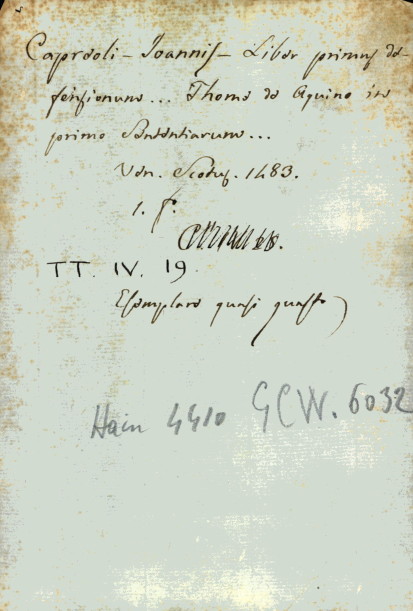 Capreoli - Joannis - Liber primus de-
fensionum... Thome de Aquino in
primo Sententiarum...
Ven. Scotus. 1483.
1. f.
TT. IV. 19.
Esemplare quasi guasto
Hain 4410 GCW. 6032